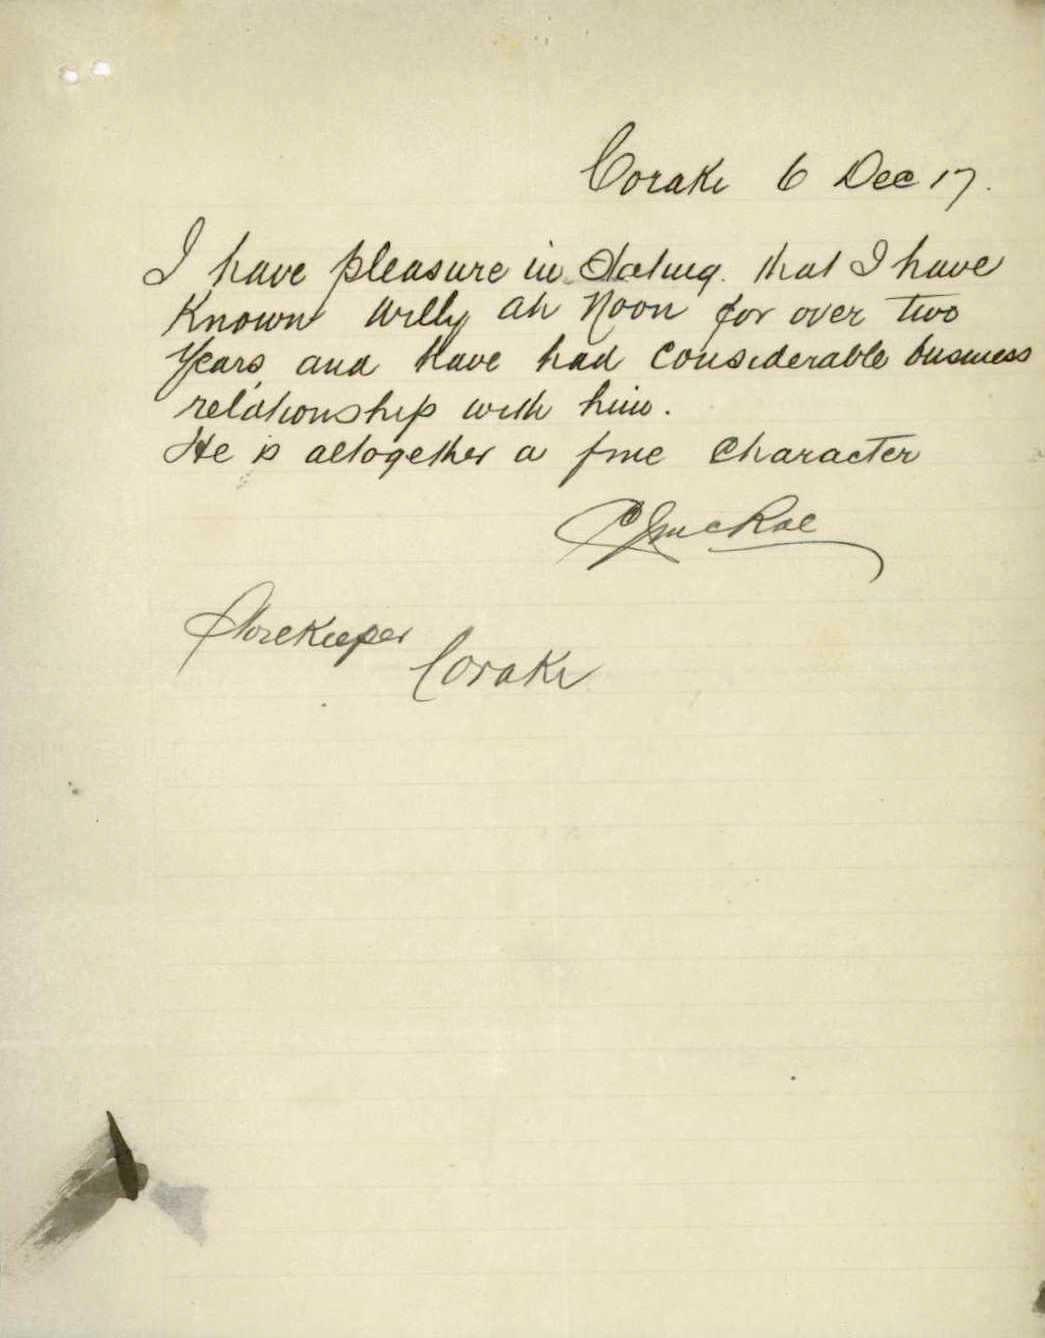 Coraki 6 Dec 17.
I have pleasure in stating that I have
Known Willy Ah Noon for over two
Years and have had considerable business
relationship with him.
He is altogether a fine Character
McRae
Storekeeper
Coraki